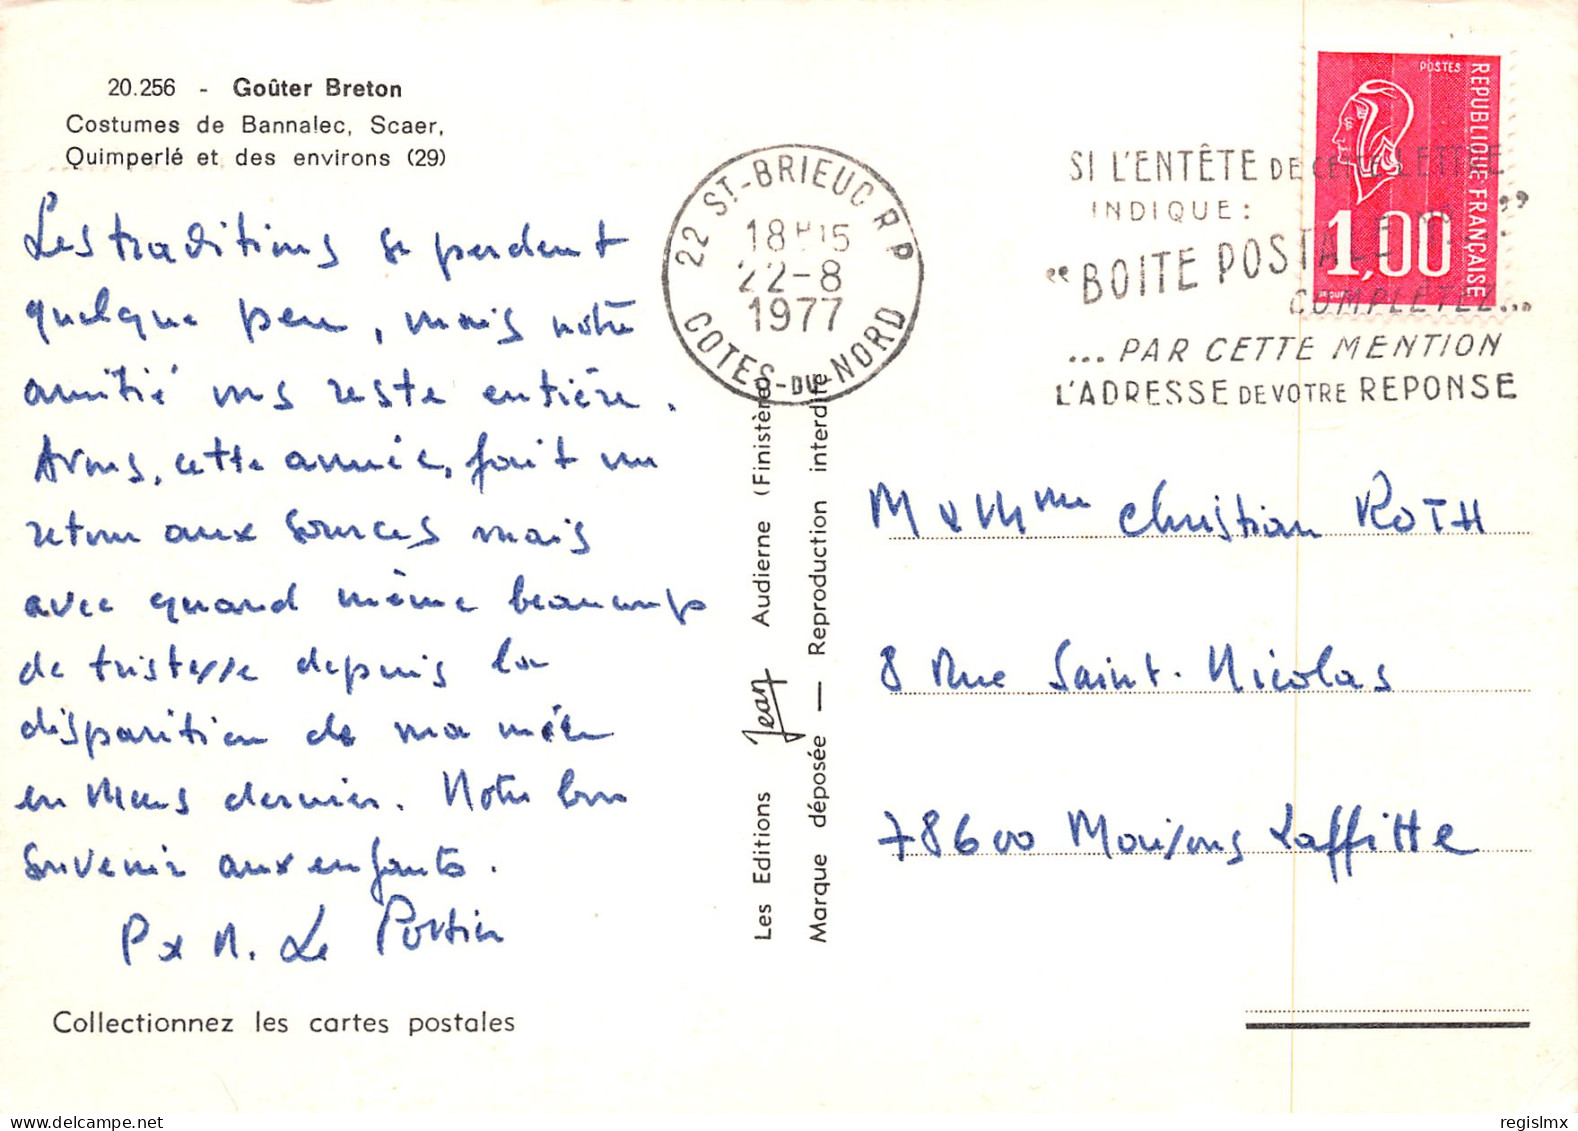 20.256 - Goûter Breton
Costumes de Bannalec, Scaer,
Quimperlé et des environs (29)
Les traditions se perdent
quelque peu, mais notre
amitié vous reste entière.
Avons, cette année, fait un
retour aux sources mais
avec quand même beaucoup
de tristesse depuis la
disparition de ma mère
en Mars dernier. Notre bon
souvenir aux enfants.
P & M. Le Portier
Collectionnez les cartes postales
Les Editions Jean Audierne (Finistère)
Marque déposée — Reproduction interdite
22 ST-BRIEUC R P
18H15
22-8
1977
COTES-DU-NORD
SI L'ENTÊTE DE CETTE LETTRE
INDIQUE :
"BOITE POSTALE N°... "
COMPLETEZ...
... PAR CETTE MENTION
L'ADRESSE DE VOTRE REPONSE
POSTES
REPUBLIQUE FRANÇAISE
1,00
M & Mme Christian ROTH
8 Rue Saint-Nicolas
78600 Maisons Laffitte
delcampe.net
regislmx